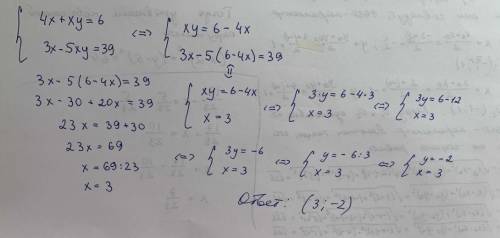 { 4x + xy = 6
{ 3x - 5xy = 39
<=> { xy = 6 - 4x
{ 3x - 5(6-4x) = 39
3x - 5(6-4x) = 39
3x - 30 + 20x = 39
23x = 39 + 30
23x = 69
x = 69 : 23
x = 3
⇓
{ xy = 6-4x
{ x = 3
<=> { 3·y = 6 - 4·3
{ x = 3
<=> { 3y = 6-12
{ x = 3
<=> { 3y = -6
{ x = 3
<=> { y = -6 : 3
{ x = 3
<=> { y = -2
{ x = 3
Ответ: (3; -2)